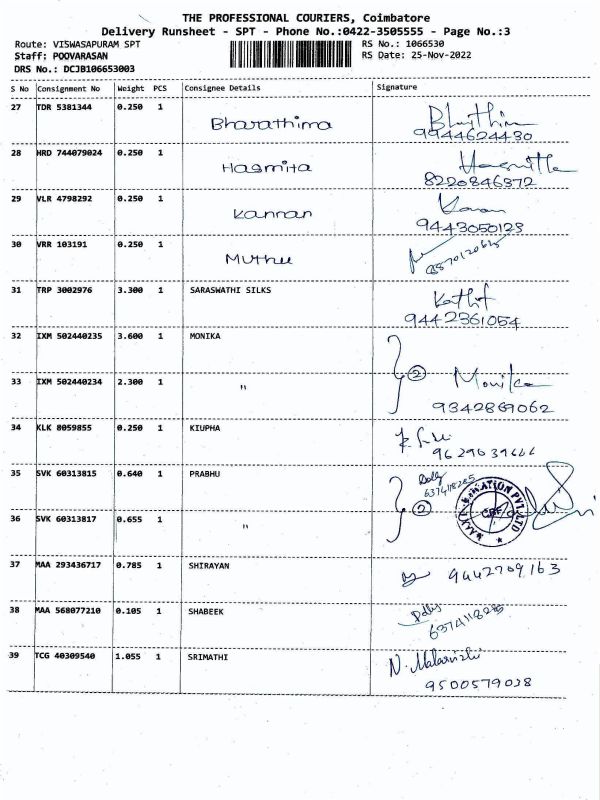 THE PROFESSIONAL COURIERS, Coimbatore
Delivery Runsheet - SPT - Phone No.:0422-3505555 - Page No.:3
Route: VISWASAPURAM SPT
RS No.: 1066530
Staff: POOVARASAN
RS Date: 25-Nov-2022
DRS No.: DCJB106653003
S No Consignment No Weight PCS Consignee Details Signature
27 TDR 5381344 0.250 1 Bharathima
9944624430
28 HRD 744079024 0.250 1 Hasmita
8220846372
29 VLR 4798292 0.250 1 Kannan
9443050123
30 VRR 103191 0.250 1 Muthu
31 TRP 3002976 3.300 1 SARASWATHI SILKS
9442361054
32 IXM 502440235 3.600 1 MONIKA
33 IXM 502440234 2.300 1 " 2 Monika
9342869062
34 KLK 8059855 0.250 1 KIUPHA
35 SVK 60313815 0.640 1 PRABHU
Dolly
6374118285
2
36 SVK 60313817 0.655 1 "
37 MAA 293436717 0.785 1 SHIRAYAN 9442709163
38 MAA 568077210 0.105 1 SHABEEK Dolly
6374118285
39 TCG 40309540 1.055 1 SRIMATHI N. Malarvizhi
9500579038